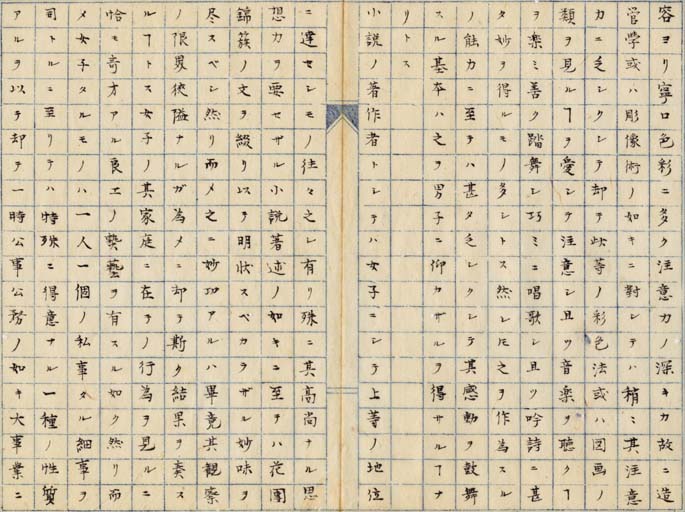 容ヨリ寧ロ色彩ニ多ク注意力ノ深キカ故ニ造
営学或ハ彫像術ノ如キニ對シテハ稍ミ其注意
カニ乏シクシテ却テ此等ノ彩色法或ハ図画ノ
類ヲ見ルヿヲ愛シテ注意シ且ツ音楽ヲ聴クヿ
ヲ楽ミ善ク踏舞シ巧ミニ唱歌シ且ツ吟詩ニ甚
タ妙ヲ得ルモノ多シトス然レ𪜈之ヲ作為スル
ノ能力ニ至テハ甚タ乏シクシテ其感動ヲ鼓舞
スル基本ハ之ヲ男子ニ仰カザルヲ得サルヿナ
リトス
小説ノ著作者トシテハ女子ニシテ上等ノ地位
ニ達セシモノ往々之レ有リ殊ニ其高尚ナル思
想力ヲ要セザル小説著述ノ如キニ至テハ花團
錦簇ノ文ヲ綴リ以テ明状スベカラザル妙味ヲ
尽スベシ然リ而メ之ニ妙功アルハ畢竟其観察
ノ限界狹隘ナルガ為メニ却テ斯ク結果ヲ奏ス
ルヿトス女子ノ其家庭ニ在テノ行為ヲ見ルニ
恰モ奇方アル良工ノ藝ヲ有スル如ク然リ而
メ女子タルモノハ一人一個ノ私事タル細事ヲ
司トルニ至リテハ特殊ニ得意ナル一種ノ性質
アルヲ以テ却テ一時公事公務ノ如キ大事業ニ